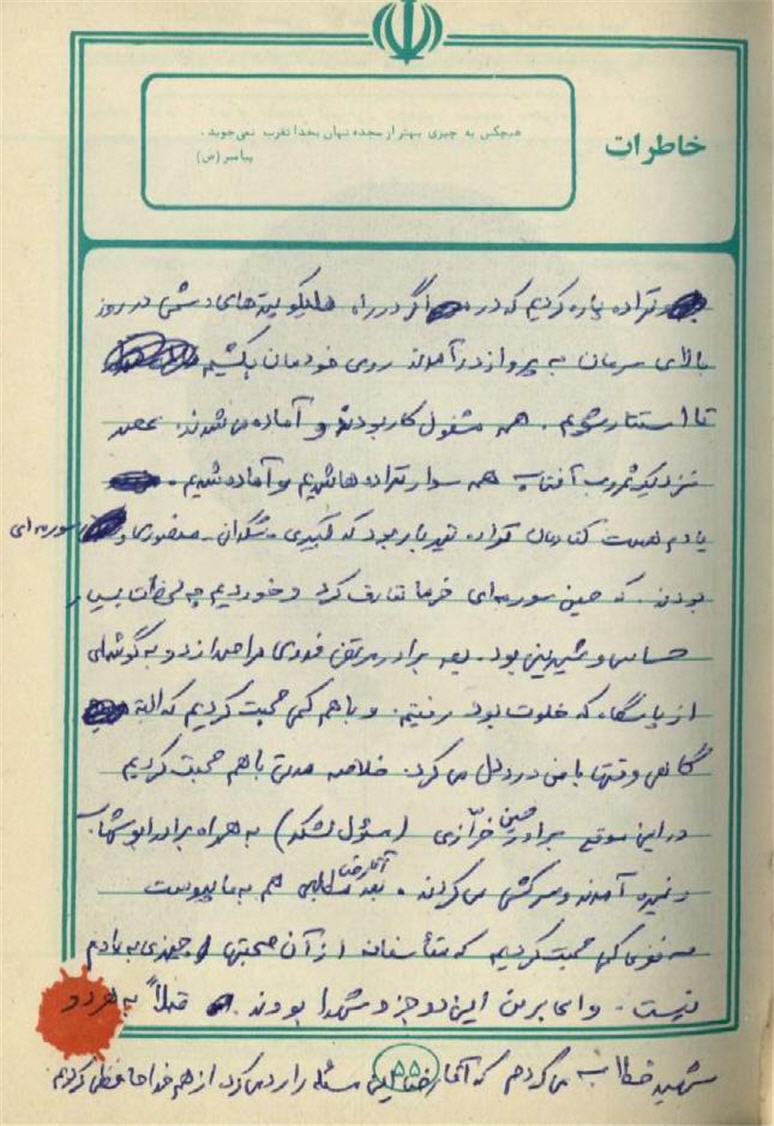 خاطرات
هیچکس به چیزی بهتر از سجده نهان بخدا تقرب نمی‌جوید.
پیامبر (ص)
تراده پاره کردیم که در اگر در راه هلیکوپترهای دشمن در روز
بالای سرمان به پرواز درآمدند روی خودمان بکشیم
تا استتار شویم. همه مشغول کار بودند و آماده می‌شدند. عصر
نزدیک غروب آفتاب همه سوار تراده‌ها شدیم و آماده شدیم.
یادم هست کنارمان تراده بود که کبیری منصوری و سورمه‌ای
بودند. که حین سورمه‌ای خرما تعارف کرد و خوردیم چه لحظات بسیار
حساس و شیرینی بود. بعد برادر مرتضی مرا صدا زد و به گوشه‌ای
از پاسگاه که خلوت بود رفتیم. و با هم کمی صحبت کردیم که البته
گاهی وقتها با من درد دل می‌کرد. خلاصه مدتی با هم صحبت کردیم
در این موقع برادر حسین خرّازی (مسئول لشکر) به همراه برادر ابوشهاب
و غیره آمدند و سرکشی می‌کردند. بعد آقا رضا هم به ما پیوست
کمی صحبت کردیم که متأسفانه از آن صحبتها چیزی به یادم
نیست. وای بر من این دو جزو شهدا بودند. قبلاً به هر دو
شهید خطاب می‌کردم که آقا رضا این مسئله را رد می‌کرد. از هم خداحافظی کردیم
۵۵